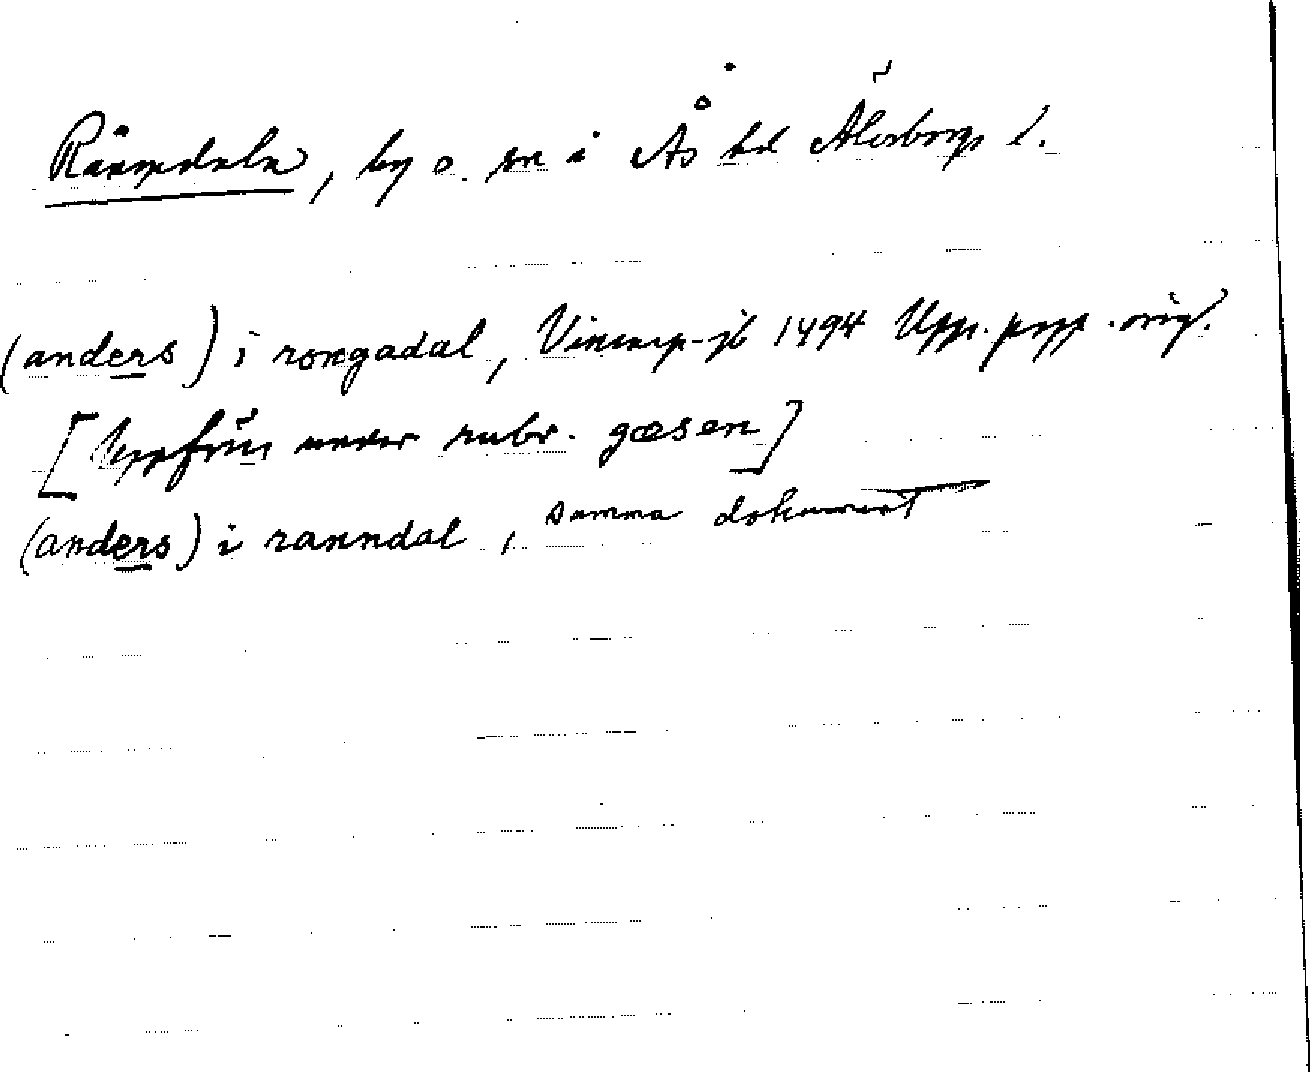 Rångedala, by o. sn i Ås hd Älvsborgs l.
(anders) i rongadal, Vinstorp-jb 1494 Upps. papp. orig.
[Uppförd under rubr. gæsen]
(anders) i ranndal, samma dokument